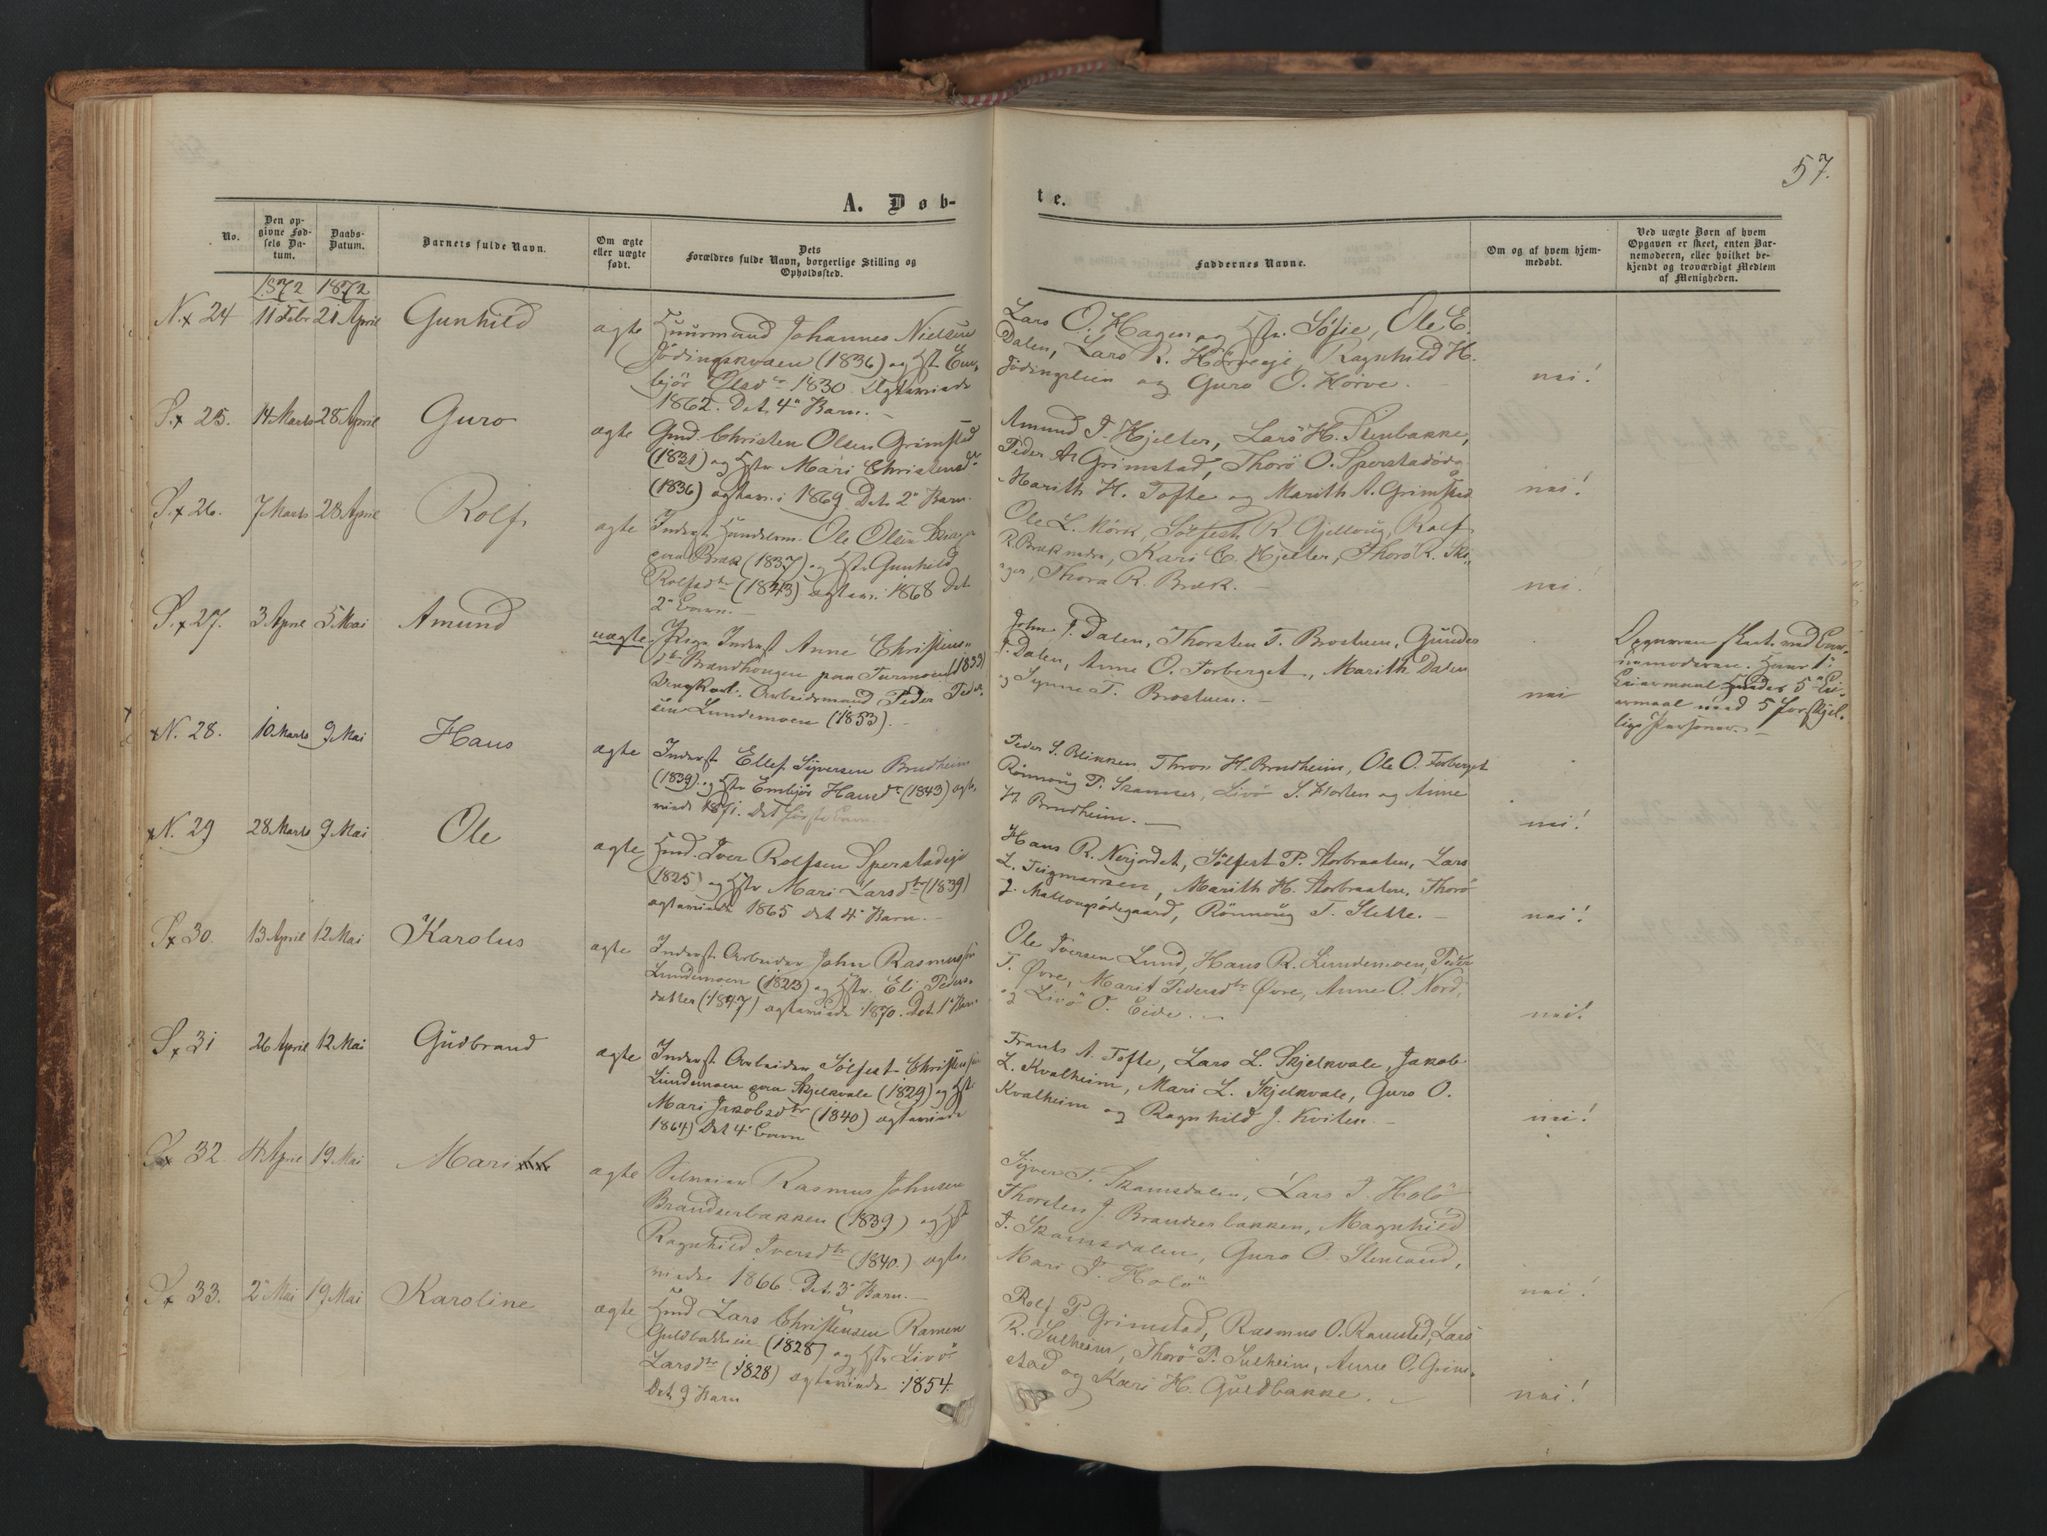 57.
A. Døb-
te.
No.
Den op-
givne Fød-
sels Da-
tum.
Daabs-
Datum.
Barnets fulde Navn.
Om ægte
eller uægte
født.
Dets
Forældres fulde Navn, borgerlige Stilling og
Opholdssted.
Faddernes Navne.
Om og af hvem hjem-
medøbt.
Ved uægte Børn af hvem
Opgaven er skeet, enten Bar-
nemoderen, eller hvilket be-
kjendt og troværdigt Medlem
af Menigheden.
1872 1872
N. 24 11 Febr 21 April Gunhild ægte
Huusmand Johannes Nielsen
(1836) og Hst. Em-
bjør Olsdtr 1830. Ægteviede
1862. Det 4 Barn. -
Lars O. Hagen og Hst. Søfie, Ole E.
Dalen, Lars R. Ragnhild H.
og Guro O. Hørve. nei!
P. 25. 14 Marts 28 April Guro ægte
Gmd. Christen Olsen Grimstad
(1831) og Hstr Mari Christensdtr
(1836) ægtev. i 1869. Det 2 Barn.
Amund J. Hjelter, Lars H. Stenbakke,
Peder A. Grimstad, Thorø O.
Marith H. Tofte og Marith A. Grimstad nei!
P. 26. 7 Marts 28 April Rolf ægte
Inderst Ole Olsen
Bræk (1837) og Hstr. Gunhild
Rolfsdtr (1843) ægtev. 1868 Det
2 Barn. -
Ole L. Mørk, Sølfest R. Gjelloug, Rolf
R. Bræk nedre, Kari E. Hjelter, Thorø R.
Thora R. Bræk. - nei!
P. 27. 3 April 5 Mai Amund uægte
Pige Inderst Anne Christens-
dtr Brandhougen paa (1833)
Arbeidsmand Peder Peder-
sen Lundemoen (1853). -
John J. Dalen, Thorsten T. Brostuen, Gunder
J. Dalen, Anne O. Forberget, Marith Dalen
og Synne T. Brostuen. - nei
Opgaven skeet ved Bar-
nemoderen. Hans 1"
Leiermaal Hendes 5" Lei-
ermaal med 5 forskjel-
lige Personer. -
N. 28. 10 Marts 9 Mai Hans ægte
Inderst Ellef Syversen Brudheim
(1839) og Hstr Embjør Hansdtr (1843) ægte-
viede 1871. Det første Barn.
Peder S. Blikken, Thron H. Brudheim, Ole O. Forberget
Rønnoug P. Skamser, Livø S. Klosten og Anne
H. Brudheim. - nei!
N. 29 28 Marts 9 Mai Ole ægte
Gmd. Iver Rolfsen
(1825) og Hstr Mari Larsdtr (1839)
ægteviede 1865 Det 4 Barn. -
Hans R. Nerjordet, Sølfest P. Storbraaten, Lars
L. Marith H. Storbraaten, Thorø
J. Rønnoug T. Slette. - nei!
P. 30. 13 April 12 Mai Karolus ægte
Inderst Arbeider John Rasmussen
Lundemoen (1823) og Hstr. Eli Peders-
datter (1847) ægteviede 1870. Det 1 Barn
Ole Iversen Lund, Hans R. Lundemoen, Peder
T. Øvre, Marit Pedersdtr Øvre, Anne O. Nord,
og Livø O. Eide. - nei!
P. 31 26 April 12 Mai Gudbrand ægte
Inderst Arbeider Sølfest Christensen
Lundemoen paa Skjelkvale (1829) og Hst.
Mari Jakobsdtr (1840) ægteviede
1864) Det 4 Barn
Frants A. Tofte, Lars L. Skjelkvale, Jakob
L. Kvalheim, Mari L. Skjelkvale, Guro O.
Kvalheim og Ragnhild J. Kviten - nei!
32. 4 April 19 Mai Mari ægte
Selveier Rasmus Johnsen
Brandserbakken (1839) og Hst
Ragnhild Iversdtr (1840) ægte-
viede 1866. Det 3 Barn. -
Syver T. Skamsdalen, Lars J. Holø
Thorsten J. Brandserbakken, Magnhild
J. Skamsdalen, Guro O. Stenland,
Mari J. Holø nei!
P. 33. 2 Mai 19 Mai Karoline ægte
Gmd Lars Christensen Ramen
Guldbakken (1828) og Hstr Livø
Larsdtr (1828) ægteviede 1854.
Det 9 Barn
Rolf P. Grimstad, Rasmus O. Ramstad, Lars
R. Sulheim, Thorø P. Sulheim, Anne O. Grim-
stad og Kari H. Guldbakke. nei!